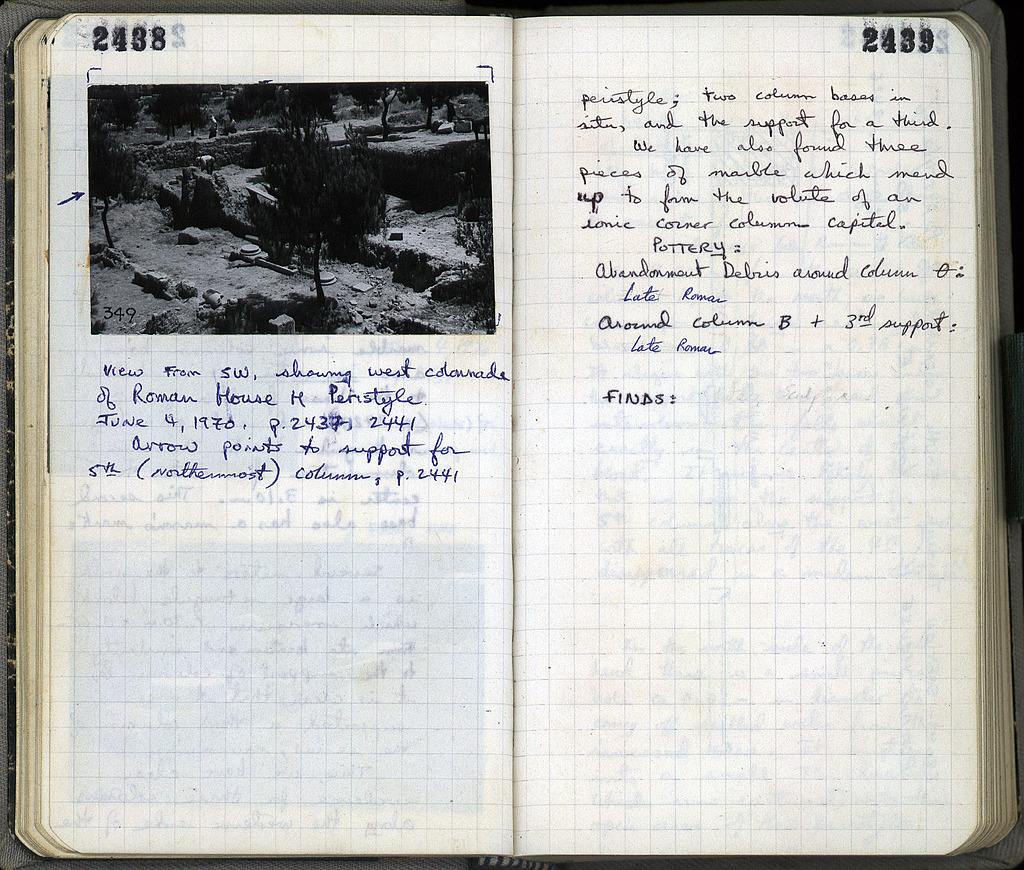 2438
349
View from SW, showing west colonnade
of Roman House H Peristyle.
June 4, 1970. p. 2437, 2441
Arrow points to support for
5th (northernmost) column, p. 2441
2439
peristyle; two column bases in
situ, and the support for a third.
We have also found three
pieces of marble which mend
up to form the volute of an
ionic corner column capital.
POTTERY:
Abandonment Debris around column θ:
Late Roman
Around column B + 3rd support:
Late Roman
FINDS: